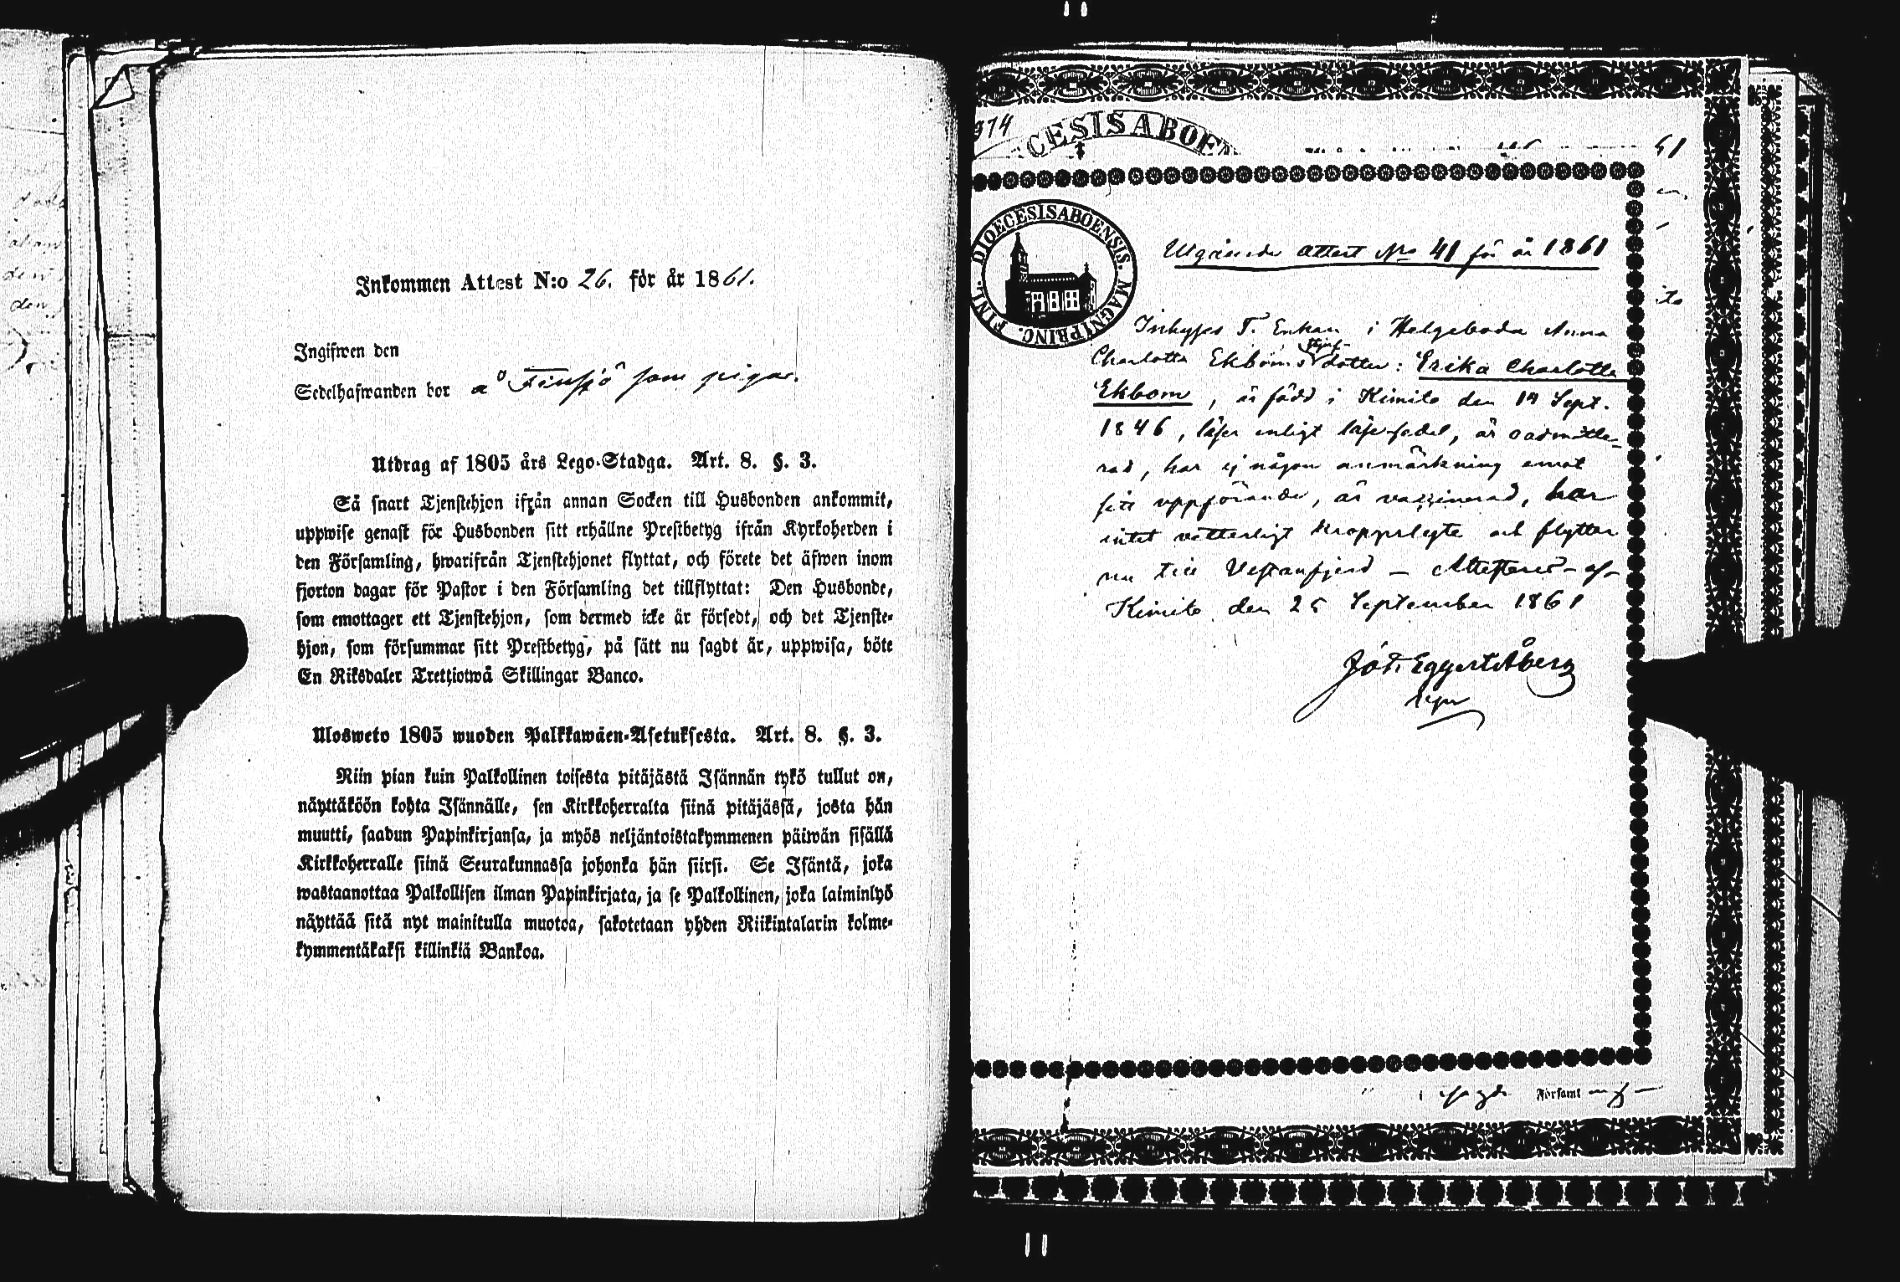 Inkommen Attest N:o 26. för år 1861.
Ingifwen den
Sedelhafwanden bor å Finsjö som piga.
Utdrag af 1805 års Lego-Stadga. Art. 8. §. 3.
Så snart Tjenstehjon ifrån annan Socken till Husbonden ankommit,
uppwise genast för Husbonden sitt erhållne Prestbetyg ifrån Kyrkoherden i
den Församling, hwarifrån Tjenstehjonet flyttat, och förete det äfwen inom
fjorton dagar för Pastor i den Församling det tillflyttat: Den Husbonde,
som emottager ett Tjenstehjon, som dermed icke är försedt, och det Tjenste-
hjon, som försummar sitt Prestbetyg, på sätt nu sagdt är, uppwisa, böte
En Riksdaler Trettiotwå Skillingar Banco.
Ulosweto 1805 wuoden Palkkawäen-Asetuksesta. Art. 8. §. 3.
Niin pian kuin Palkollinen toisesta pitäjästä Isännän tykö tullut on,
näyttäköön kohta Isännälle, sen Kirkkoherralta siinä pitäjässä, josta hän
muutti, saadun Papinkirjansa, ja myös neljäntoistakymmenen päiwän sisällä
Kirkkoherralle siinä Seurakunnassa johonka hän siirsi. Se Isäntä, joka
wastaanottaa Palkollisen ilman Papinkirjata, ja se Palkollinen, joka laiminlyö
näyttää sitä nyt mainitulla muotoa, sakotetaan yhden Riikintalarin kolme-
kymmentäkaksi killinkiä Bankoa.
374
CESIS ABOE
61
DIOECESIS ABOENSIS. MAGNI PRINC. FINL.
Utgående attest No 41 för år 1861
Inhyses T. Enkan i Helgeboda Anna
Charlotta Ekboms styf-dotter: Erika Charlotta
Ekbom, är född i Kimito den 14 Sept.
1846, läser enligt läsesedel, är oadmitte-
rad, har ej någon anmärkning emot
sitt uppförande, är vaccinerad, har
intet vetterligt kroppslyte och flyttar
nu till Vestanfjerd – Attesteras af
Kimito den 25 September 1861
Joh. Eggert Åberg
Församl